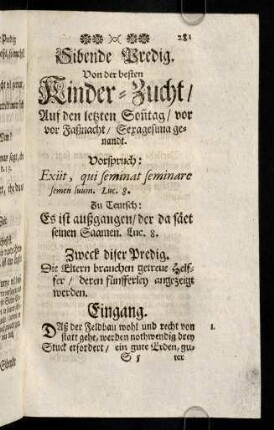 281
Sibende Predig.
Von der besten
Kinder-Zucht/
Auf den letzten Soñtag/ vor
vor Faßnacht/ Sexagesima ge-
nandt.
Vorspruch:
Exiit, qui seminat seminare
semen suum. Luc. 8.
Zu Teutsch:
Es ist außgangen/ der da säet
seinen Saamen. Luc. 8.
Zweck diser Predig.
Die Eltern brauchen getreue Helf-
fer/ deren fünfferley angezeigt
werden.
Eingang.
Daß der Feldbau wohl und recht von 1.
statt gehe, werden nothwendig drey
Stuck erfordert/ ein gute Erden, gu-
S 5 ter